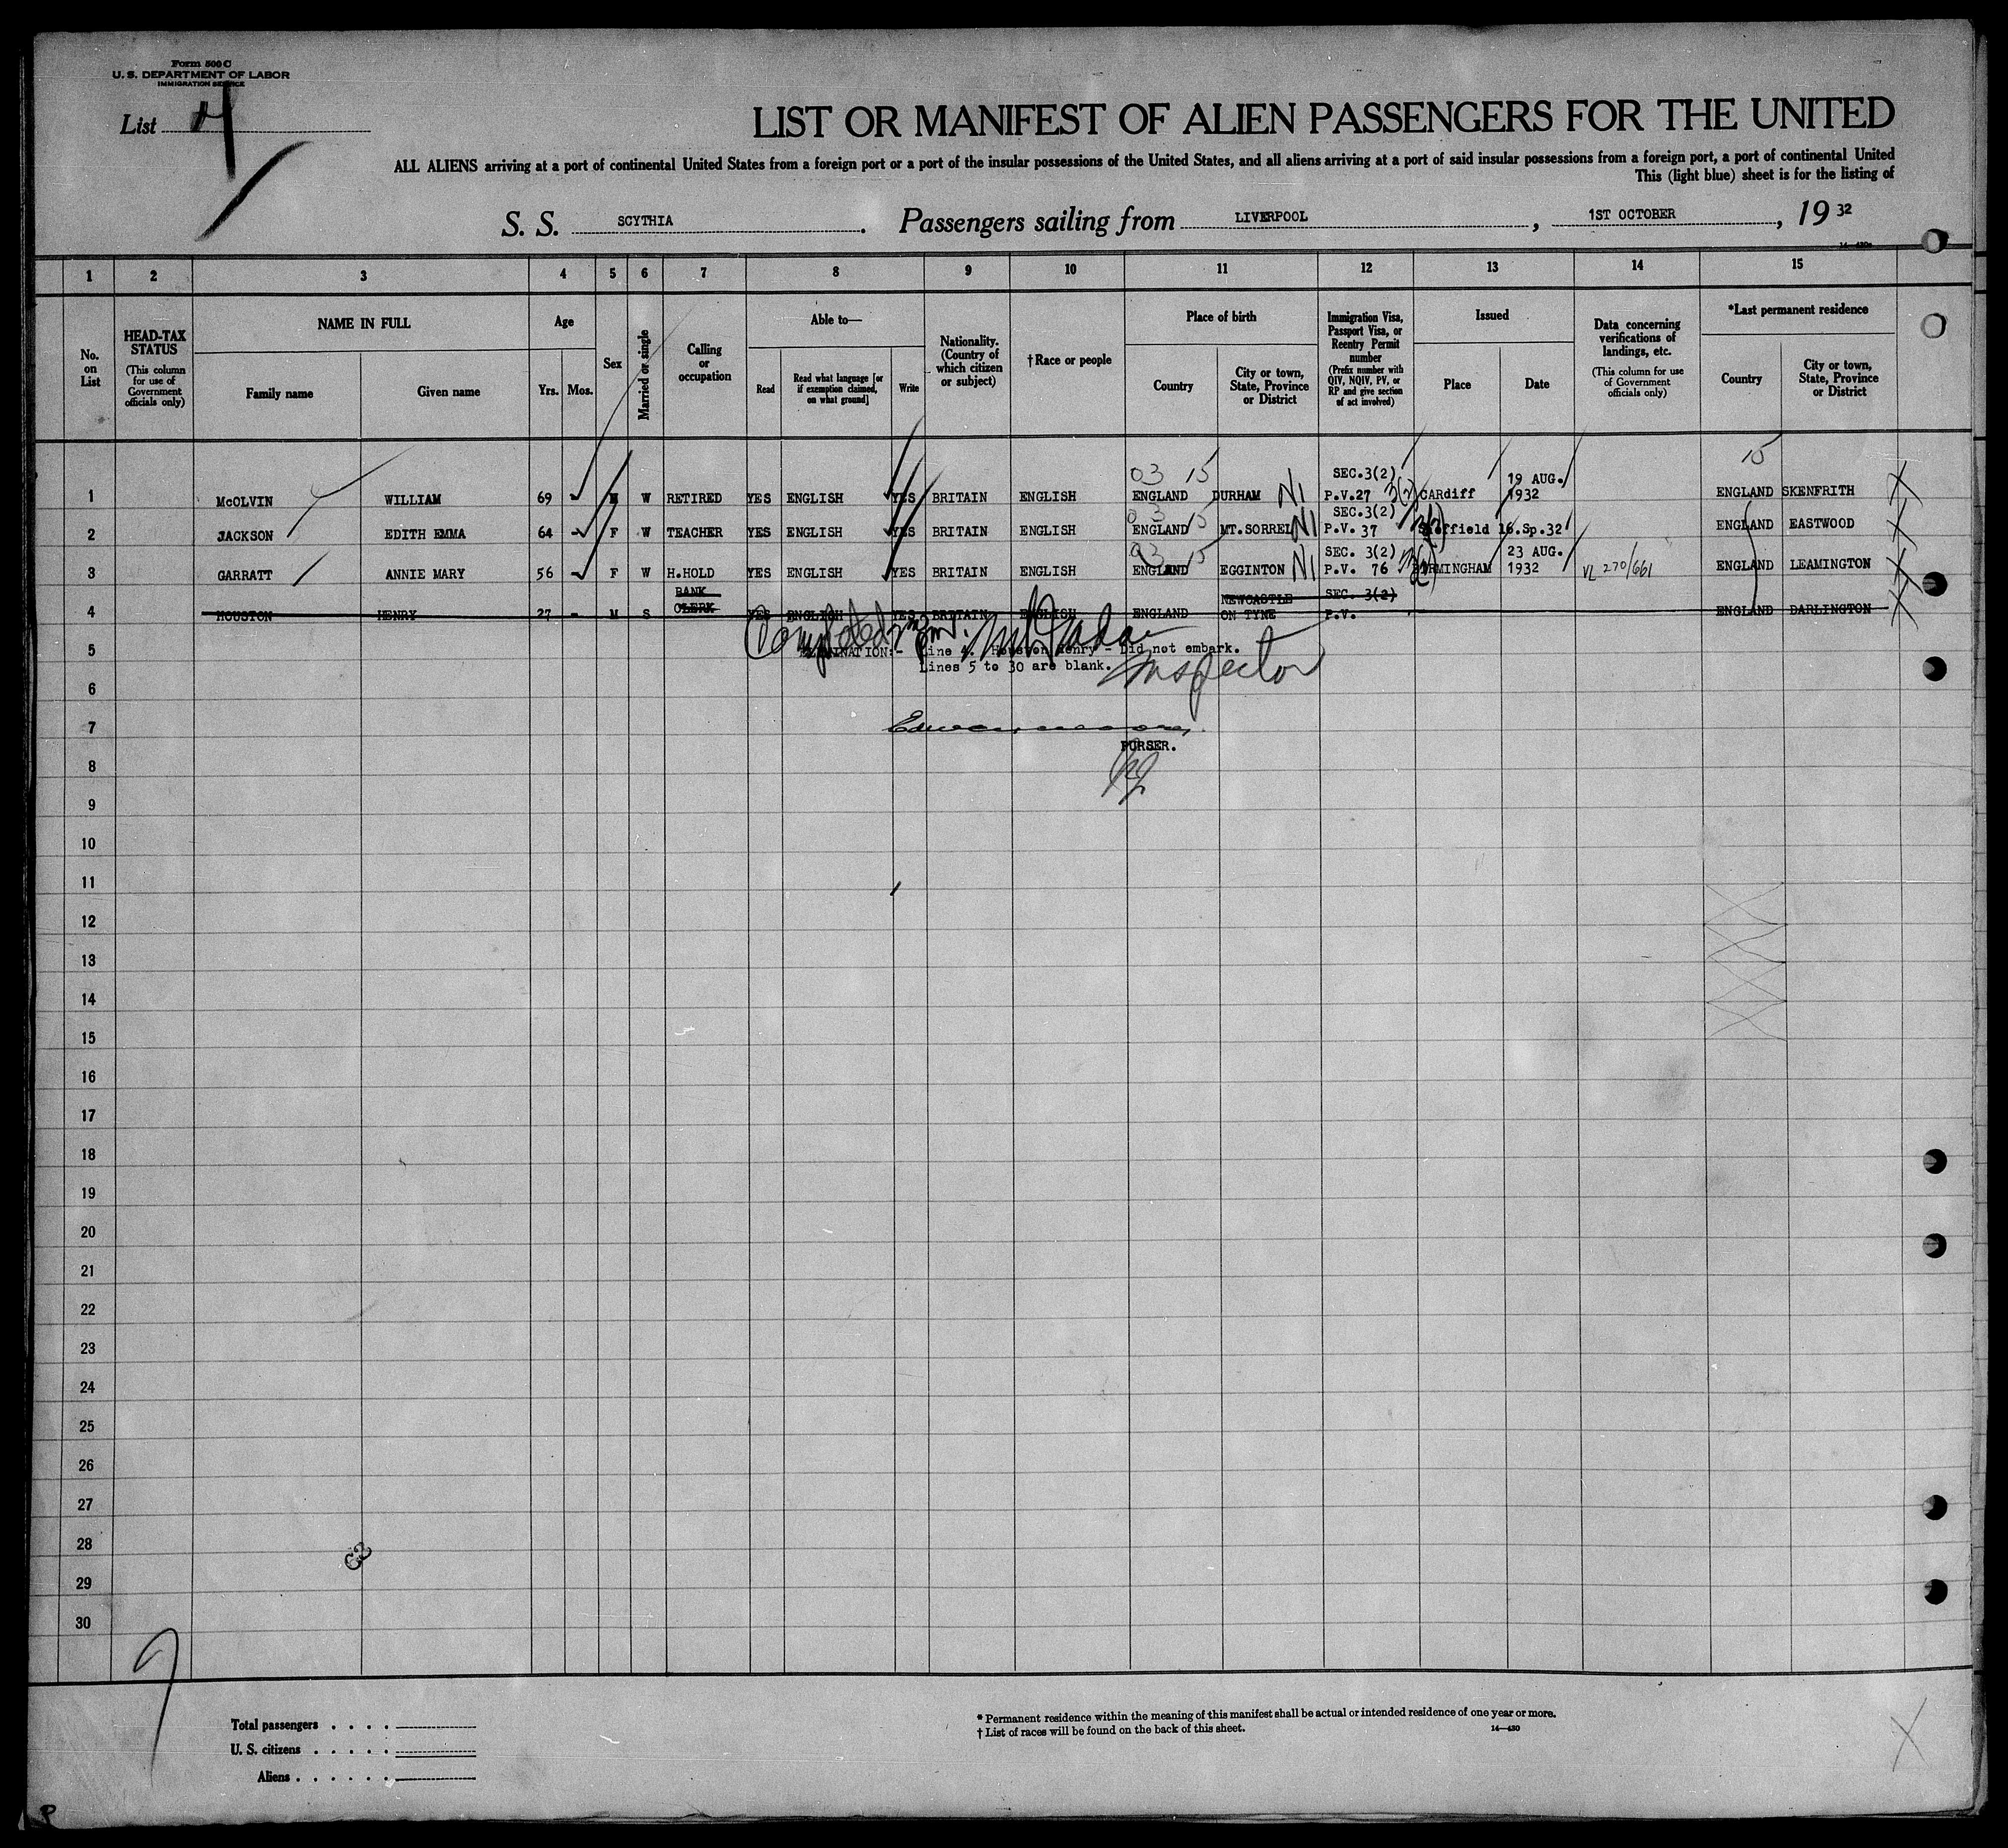 Form 500 C
U. S. DEPARTMENT OF LABOR
IMMIGRATION SERVICE
List 4
LIST OR MANIFEST OF ALIEN PASSENGERS FOR THE UNITED
ALL ALIENS arriving at a port of continental United States from a foreign port or a port of the insular possessions of the United States, and all aliens arriving at a port of said insular possessions from a foreign port, a port of continental United
This (light blue) sheet is for the listing of
S. S. SCYTHIA . Passengers sailing from LIVERPOOL , 1ST OCTOBER , 19 32
1 2 3 4 5 6 7 8 9 10 11 12 13 14 15
No. on List
HEAD-TAX STATUS (This column for use of Government officials only)
NAME IN FULL
Family name
Given name
Age
Yrs. Mos.
Sex
Married or single
Calling or occupation
Able to—
Read
Read what language [or if exemption claimed, on what ground]
Write
Nationality. (Country of which citizen or subject)
†Race or people
Place of birth
Country
City or town, State, Province or District
Immigration Visa, Passport Visa, or Reentry Permit number (Prefix number with QIV, NQIV, PV, or RP and give section of act involved)
Issued
Place
Date
Data concerning verifications of landings, etc. (This column for use of Government officials only)
*Last permanent residence
Country
City or town, State, Province or District
03 15 15
SEC.3(2) 19 AUG.
1 McOLVIN WILLIAM 69 M W RETIRED YES ENGLISH YES BRITAIN ENGLISH ENGLAND DURHAM NI P.V.27 3(2) CARdiff 1932 ENGLAND SKENFRITH
03 15 SEC.3(2)
2 JACKSON EDITH EMMA 64 - F W TEACHER YES ENGLISH YES BRITAIN ENGLISH ENGLAND MT.SORREL NI P.V. 37 3(2) Sheffield 16.Sp.32 ENGLAND EASTWOOD
03 15 SEC. 3(2) 23 AUG.
3 GARRATT ANNIE MARY 56 - F W H.HOLD YES ENGLISH YES BRITAIN ENGLISH ENGLAND EGGINTON NI P.V. 76 3(2) BIRMINGHAM 1932 VL 270/661 ENGLAND LEAMINGTON
BANK NEWCASTLE SEC. 3(2)
4 HOUSTON HENRY 27 - M S CLERK YES ENGLISH YES BRITAIN ENGLISH ENGLAND ON TYNE P.V. ENGLAND DARLINGTON
Completed
5 Line 4. Houston Henry - Did not embark.
Lines 5 to 30 are blank.
Inspector
6
7
PURSER.
8
9
10
11
12
13
14
15
16
17
18
19
20
21
22
23
24
25
26
27
28
29
30
Total passengers . . . .
U. S. citizens . . . . .
Aliens . . . . . .
* Permanent residence within the meaning of this manifest shall be actual or intended residence of one year or more.
† List of races will be found on the back of this sheet.
14—430